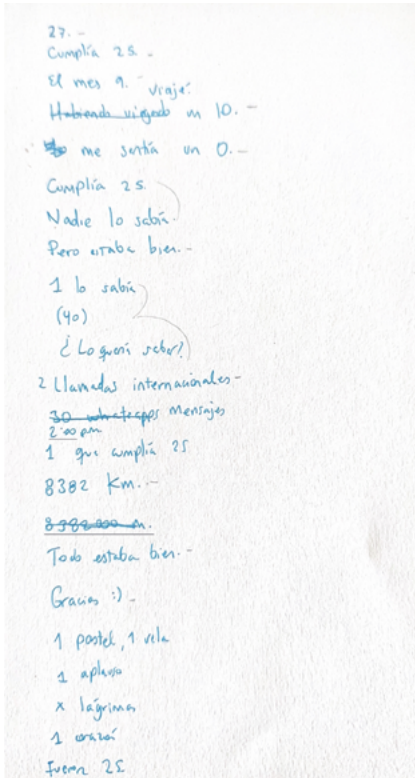 27. -
Cumplía 25. -
El mes 9. - viajé.
Habiendo viajado un 10. -
me sentía un 0. -
Cumplía 25.
Nadie lo sabía.
Pero estaba bien. -
1 lo sabía
(yo)
¿Lo quería saber?
2 Llamadas internacionales -
30 whatsapps Mensajes
2:00 pm
1 que cumplía 25
8382 Km. -
8382000 m.
Todo estaba bien. -
Gracias :) -
1 pastel, 1 vela
1 aplauso
x lágrimas
1 corazón
Fueron 25